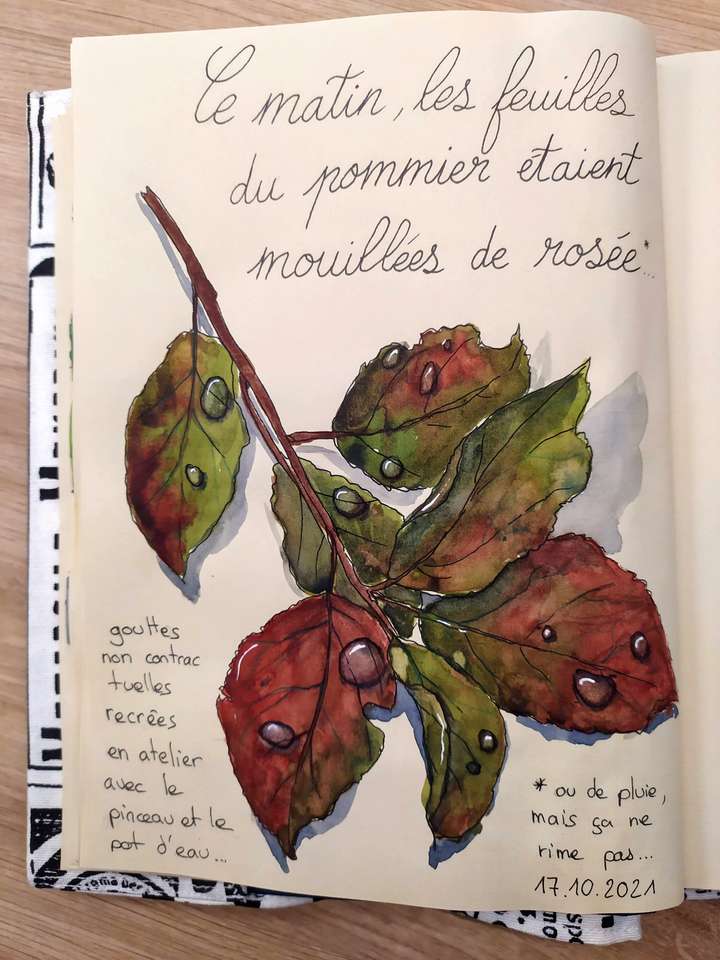 Ce matin, les feuilles
du pommier étaient
mouillées de rosée*...
gouttes
non contrac
tuelles
recréés
en atelier
avec le
pinceau et le
pot d'eau...
* ou de pluie,
mais ça ne
rime pas...
17.10.2021